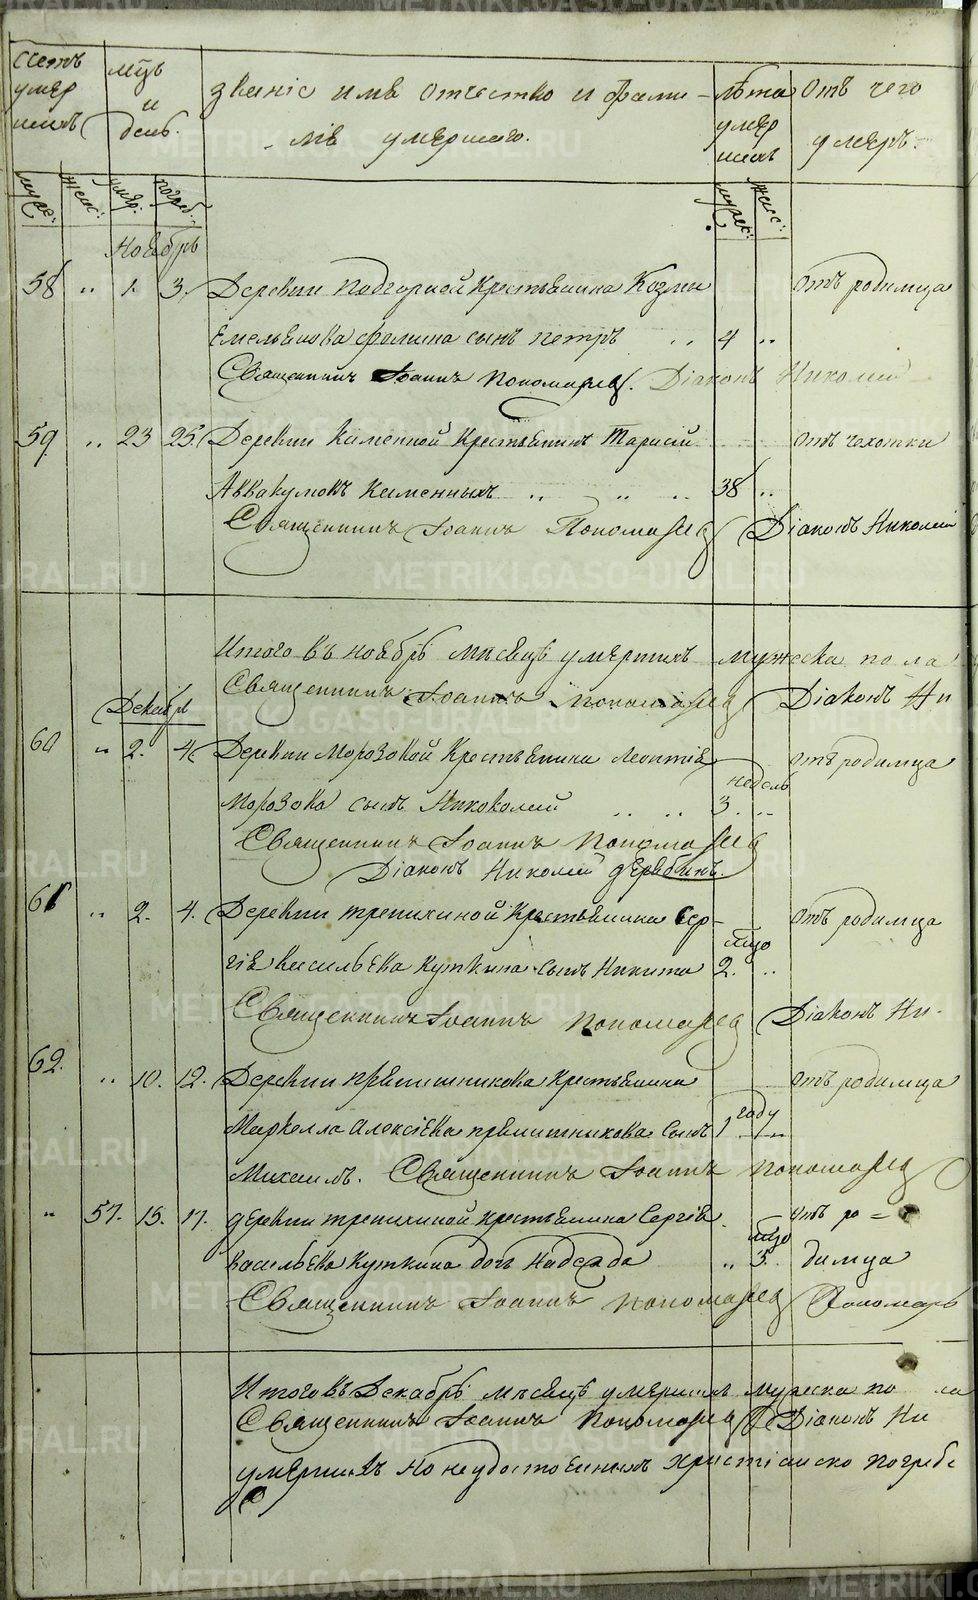 Счетъ умер шихъ
мцъ и день.
Званіе имя отчество и фами-
лія умершаго.
Лѣта умер шихъ
Отъ чего умеръ.
муж: жен: умер: погреб. муж: жен:
Ноябрь
58 " 1. 3. Деревни Подгорной Крестьянина Козмы отъ родимца
Емельянова сынъ Петръ " 4 "
Священникъ Іоаннъ Пономаревъ. Діаконъ Николай
59 " 23 25. Деревни Каменной Крестьянинъ Тарасій отъ чахотки
Аввакумовъ Каменныхъ " " " 38 "
Священникъ Іоаннъ Пономаревъ Діаконъ Николай
Итого въ ноябрѣ мѣсяцѣ умершихъ мужеска пола
Священникъ Іоаннъ Пономаревъ Діаконъ Ни
Декабрь
60 " 2. 4. Деревни Морозовой Крестьянина Леонтія отъ родимца
недѣль
Морозова сынъ " " 3. "
Священникъ Іоаннъ Пономаревъ
Діаконъ Николай Дерябинъ.
61 " 2. 4. Деревни Трепихиной Крестьянина Сер- отъ родимца
мцо
гія Васильева Куткина сынъ Никита 2. "
Священникъ Іоаннъ Пономаревъ Діаконъ Ни-
62. " 10. 12. Деревни Прямишникова Крестьянина отъ родимца
году
Маркелла Алексіева Прямишникова сынъ 1 "
Михаилъ. Священникъ Іоаннъ Пономаревъ
" 57. 15. 17. Деревни Трепихиной Крестьянина Сергія отъ ро=
мцо
Васильева Куткина дочь Надежда " 5. димца
Священникъ Іоаннъ Пономаревъ Пономарь
Итого въ Декабрѣ мѣсяцѣ умершихъ мужеска по ла
Священникъ Іоаннъ Пономаревъ Діаконъ Ни
умершихъ но неудостоенныхъ христіанско погребе
METRIKI.GASO-URAL.RU